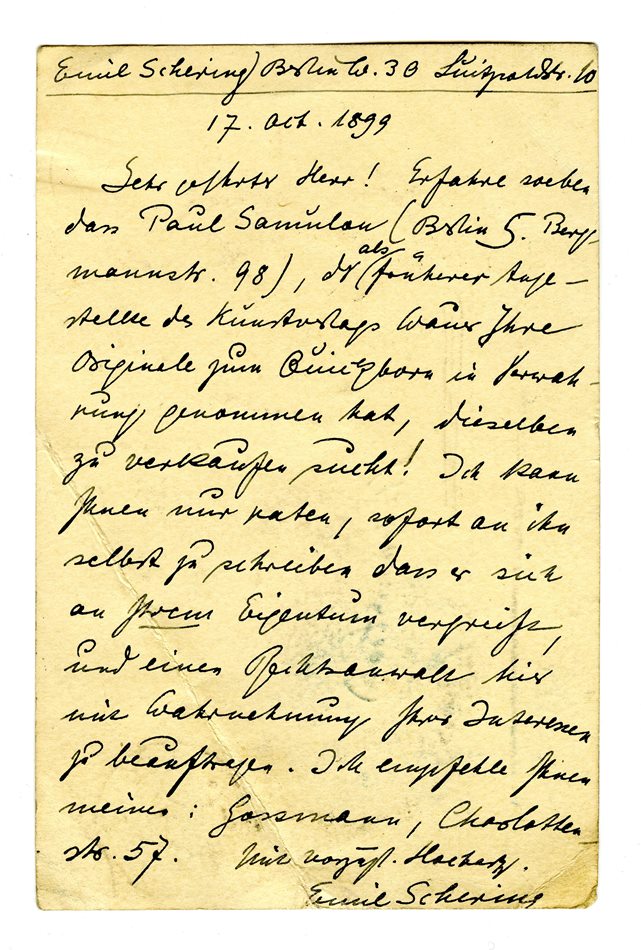 Emil Schering, Berlin W. 30 Luitpoldstr. 10
17. Oct. 1899
Sehr geehrter Herr! Erfahre soeben
dass Paul Samulon (Berlin S. Berg-
mannstr. 98), der (als früherer Ange-
stellte des Kunstverlags Ihre
Originale zum Quickborn in Verwah-
rung genommen hat, dieselben
zu verkaufen sucht! Ich kann
Ihnen nur raten, sofort an ihn
selbst zu schreiben dass er sich
an Ihrem Eigentum vergreift,
und einen Rechtsanwalt hier
mit Wahrnehmung Ihrer Interessen
zu beauftragen. Ich empfehle Ihnen
meinen: Gossmann, Charlotten-
str. 57. Mit vorzügl. Hochachtg.
Emil Schering